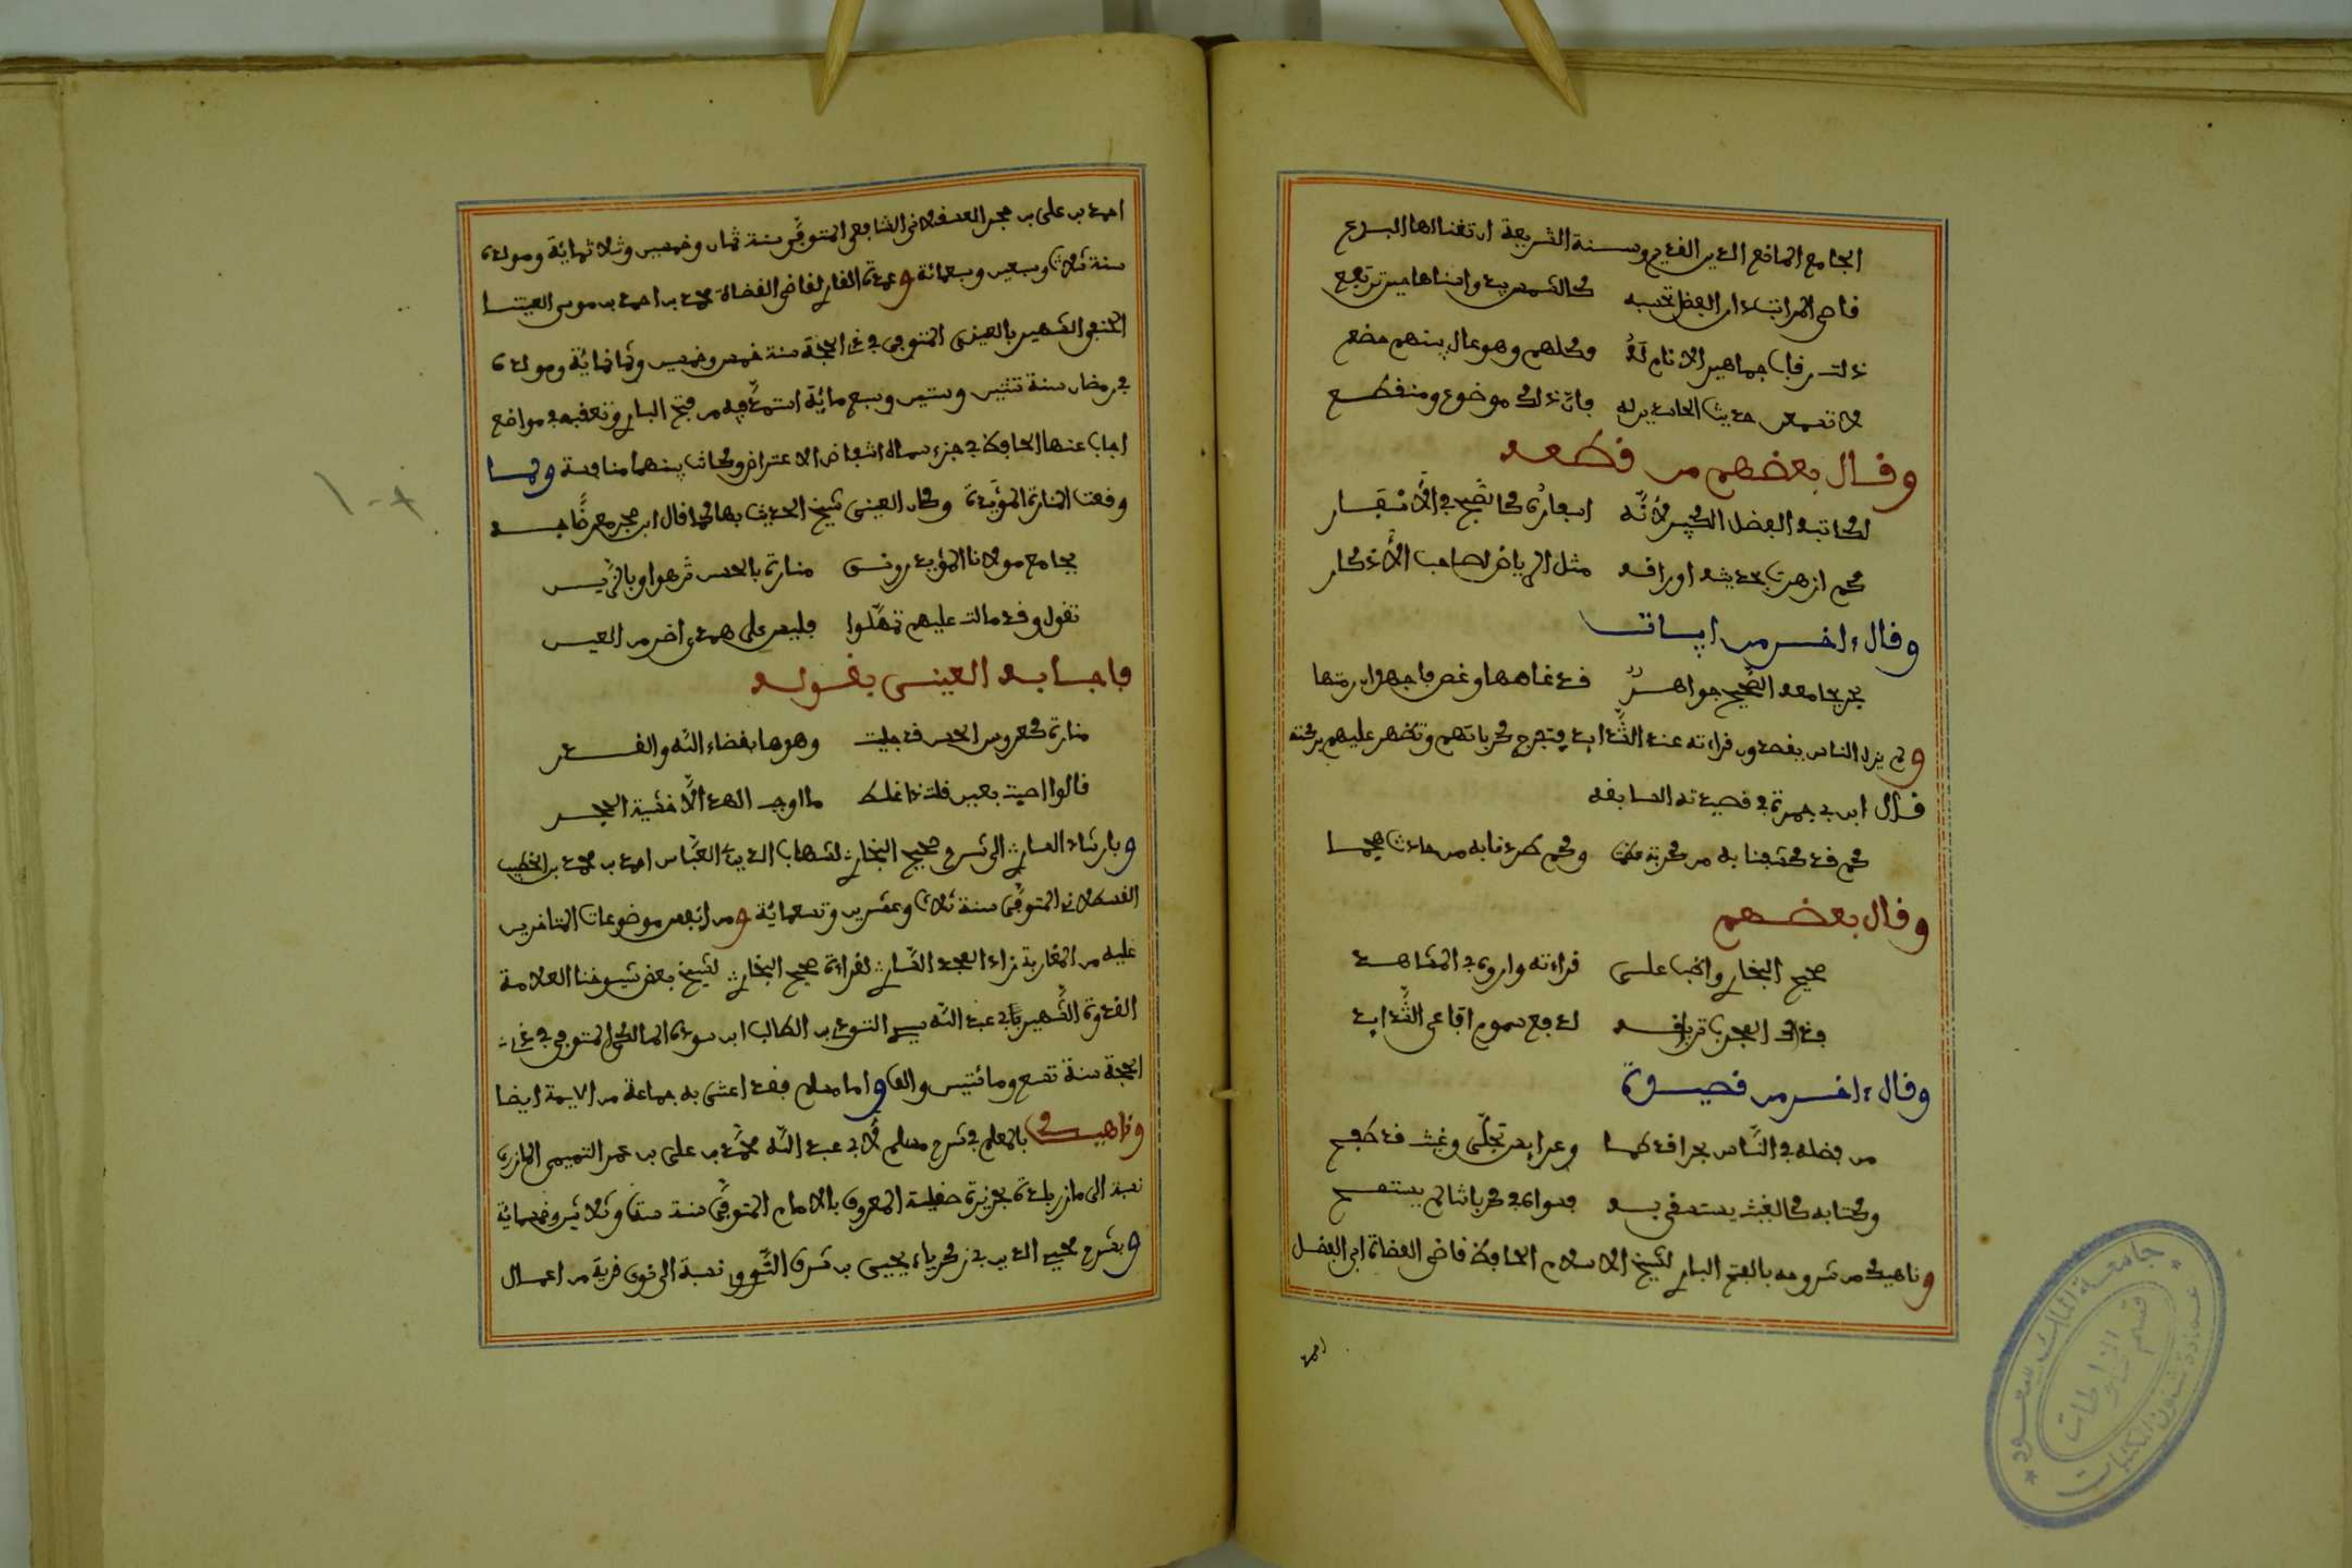 الجامع المانع الدين القويم وسنة الشريعة ان تغتالها البدع
قاصي المراتب داني الفضل تحسبه كالشمس يبدو سناها حين ترتفع
ذلت رقاب جماهير الانام له وكلهم وهو عال بينهم خضع
لا تسمعن حديث الحاسدين له فان ذلك موضوع ومنقطع
وقال بعضهم من قطعه
لكاتبه الفضل الكبير لأنه اسفاره كالصبح في الأسفار
كم ازهرت بحديثه اوراقه مثل الرياض لصاحب الأذكار
وقال ءاخر من ابيات
بحر بجامعه الصحيح جواهر قد غاصها وغص فاجهد ان رمتها
ولم يزل الناس يقصدون قراءته عند الشدايد فتفرج كرباتهم وتظهر عليهم بركته
قال ابن ابي جمرة في قصيدته السابقه
كم قد كشفنا به من كربة عظمت وكم طردنا به من حادث هجما
وقال بعضهم
صحيح البخاري واظب على قراءته واروه في المشاهد
فذاك المجرب ترياقه لدفع سموم افاعي الشدايد
وقال ءاخر من قصيدة
من فضله في الناس بحر قد طما وعرايس تجلى وغيث قد طفح
وكتابه كالغيث يستسقى به فسواه في كرباتنا لم يستصح
وناهيك من شروحه بالفتح الباري لشيخ الاسلام الحافظ قاضي القضاة ابي الفضل
احمد
احمد بن علي بن حجر العسقلاني الشافعي المتوفى سنة ثمان وخمسين وثلاثمائة ومولده
سنة ثلاث وسبعين وسبعمائة وعمدة القاري لقاضي القضاة محمد بن احمد بن موسى العينتا
الحنفي الشهير بالعيني المتوفى في ذي الحجة سنة خمس وخمسين وثمانمائة ومولده
في رمضان سنة ثنتين وستين وسبع مائة استمد فيه من فتح الباري وتعقبه في مواضع
اجاب عنها الحافظ في جزء سماه انتقاض الاعتراض وكانت بينهما منافسة ولما
وقعت المنارة المؤيدة وكان العيني شيخ الحديث بها كما قال ابن حجر معرضا به
بجامع مولانا المؤيد رونق منارته بالحسن تزهوا وبالزين
تقول وقد مالت عليهم تمهلوا فليس على هدمي اضر من العين
فاجابه العيني بقوله
منارة كعروس الحسن قد جليت وهدمها بقضاء الله والقدر
قالوا اصيبت بعين قلت ذا غلط ما اوجب الهدم الا خشية الحجر
وبارشاد الساري الى شرح صحيح البخاري لشهاب الدين ابي العباس احمد بن محمد بن الخطيب
القسطلاني المتوفى سنة ثلاث وعشرين وتسعمائة ومن انفس موضوعات المتاخرين
عليه من المغاربة زاد المجد الساري لقراءة صحيح البخاري لشيخ بعض شيوخنا العلامة
القدوة الشهير بابي عبد الله سيدي التاودي بن الطالب ابن سودة المالكي المتوفى في ذي
الحجة سنة تسع ومائتين والف واما مسلم فقد اعتنى به جماعة من الايمة ايضا
وناهيك بالمعلم في شرح مسلم لأبي عبد الله محمد بن علي بن عمر التميمي المازري
نسبة الى مازر بلدة بجزيرة صقلية المعروف بالامام المتوفى سنة ست وثلاثين وخمسمائة
وبشرح محيي الدين ابي زكرياء يحيى بن شرف النووي نسبة الى نوى قرية من اعمال
جامعة الملك سعود
عمادة شئون المكتبات
قسم المخطوطات